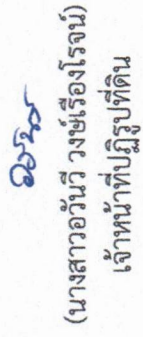 (นางสาวอวันวี วงษ์เรืองโรจน์)
เจ้าหน้าที่ปฏิรูปที่ดิน